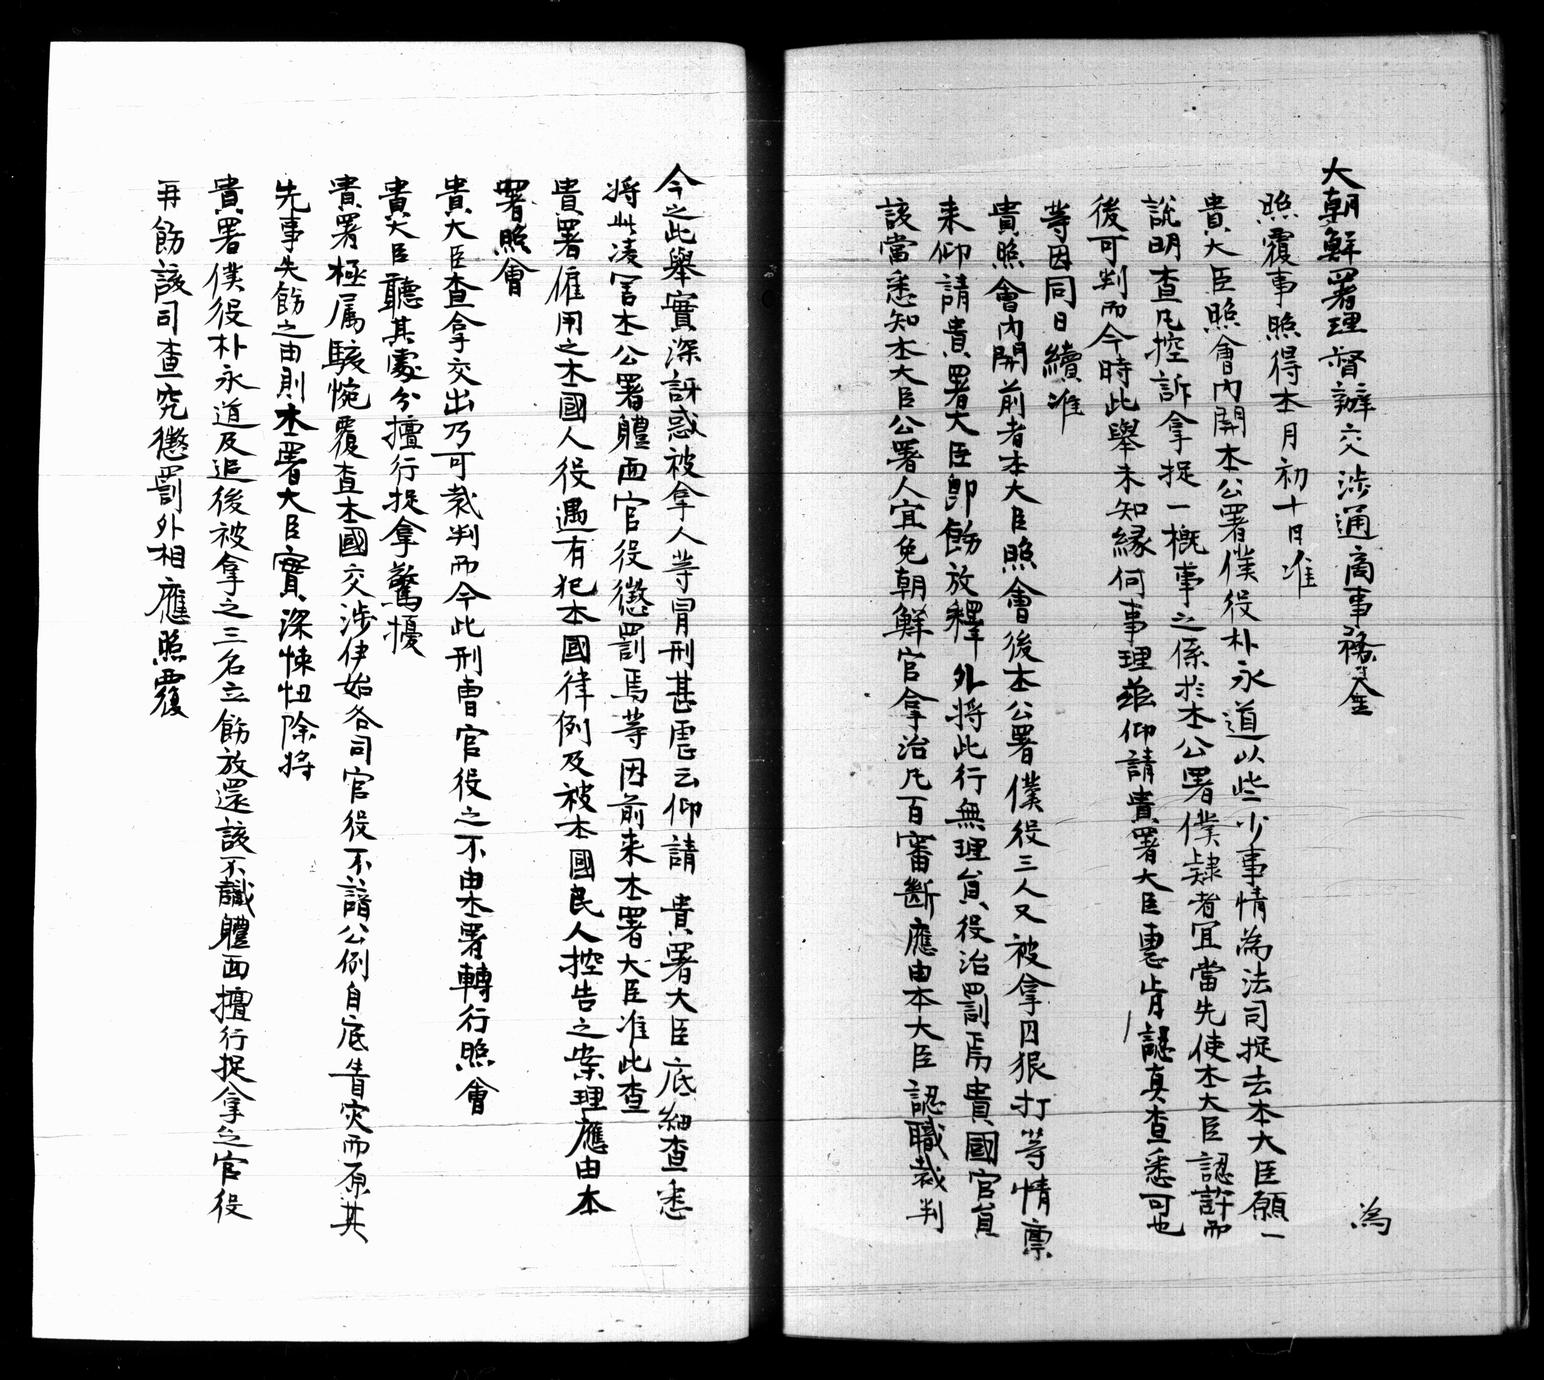 大朝鮮署理督辦交涉通商事務金 為
照覆事照得本月初十日准
貴大臣照會內開本公署僕役朴永道以些少事情為法司捉去本大臣願一
說明查凡控訴拿捉一概事之係於本公署僕隸者宜當先使本大臣認許而
後可判而今時此舉未知緣何事理茲仰請貴署大臣惠肯認真查悉可也
等因同日續准
貴照會內開前者本大臣照會後本公署僕役三人又被拿囚狠打等情稟
來仰請貴署大臣卽飭放釋外將此行無理員役治罰焉貴國官員
該當悉知本大臣公署人宜免朝鮮官拿治凡百審斷應由本大臣認職裁判
今之此舉實深訝惑被拿人等冒刑甚虐云仰請 貴署大臣底細查悉
將此凌害本公署體面官役懲罰焉等因前來本署大臣准此查
貴署僱用之本國人役遇有犯本國律例及被本國良人控告之案理應由本
署照會
貴大臣查拿交出乃可裁判而今此刑曹官役之不由本署轉行照會
貴大臣聽其處分擅行捉拿驚擾
貴署極属駭惋覆查本國交涉伊始各司官役不諳公例自底眚灾而原其
先事失飭之由則本署大臣實深悚忸除將
貴署僕役朴永道及追後被拿之三名立飭放還該不識體面擅行捉拿之官役
再飭該司查究懲罰外相應照覆